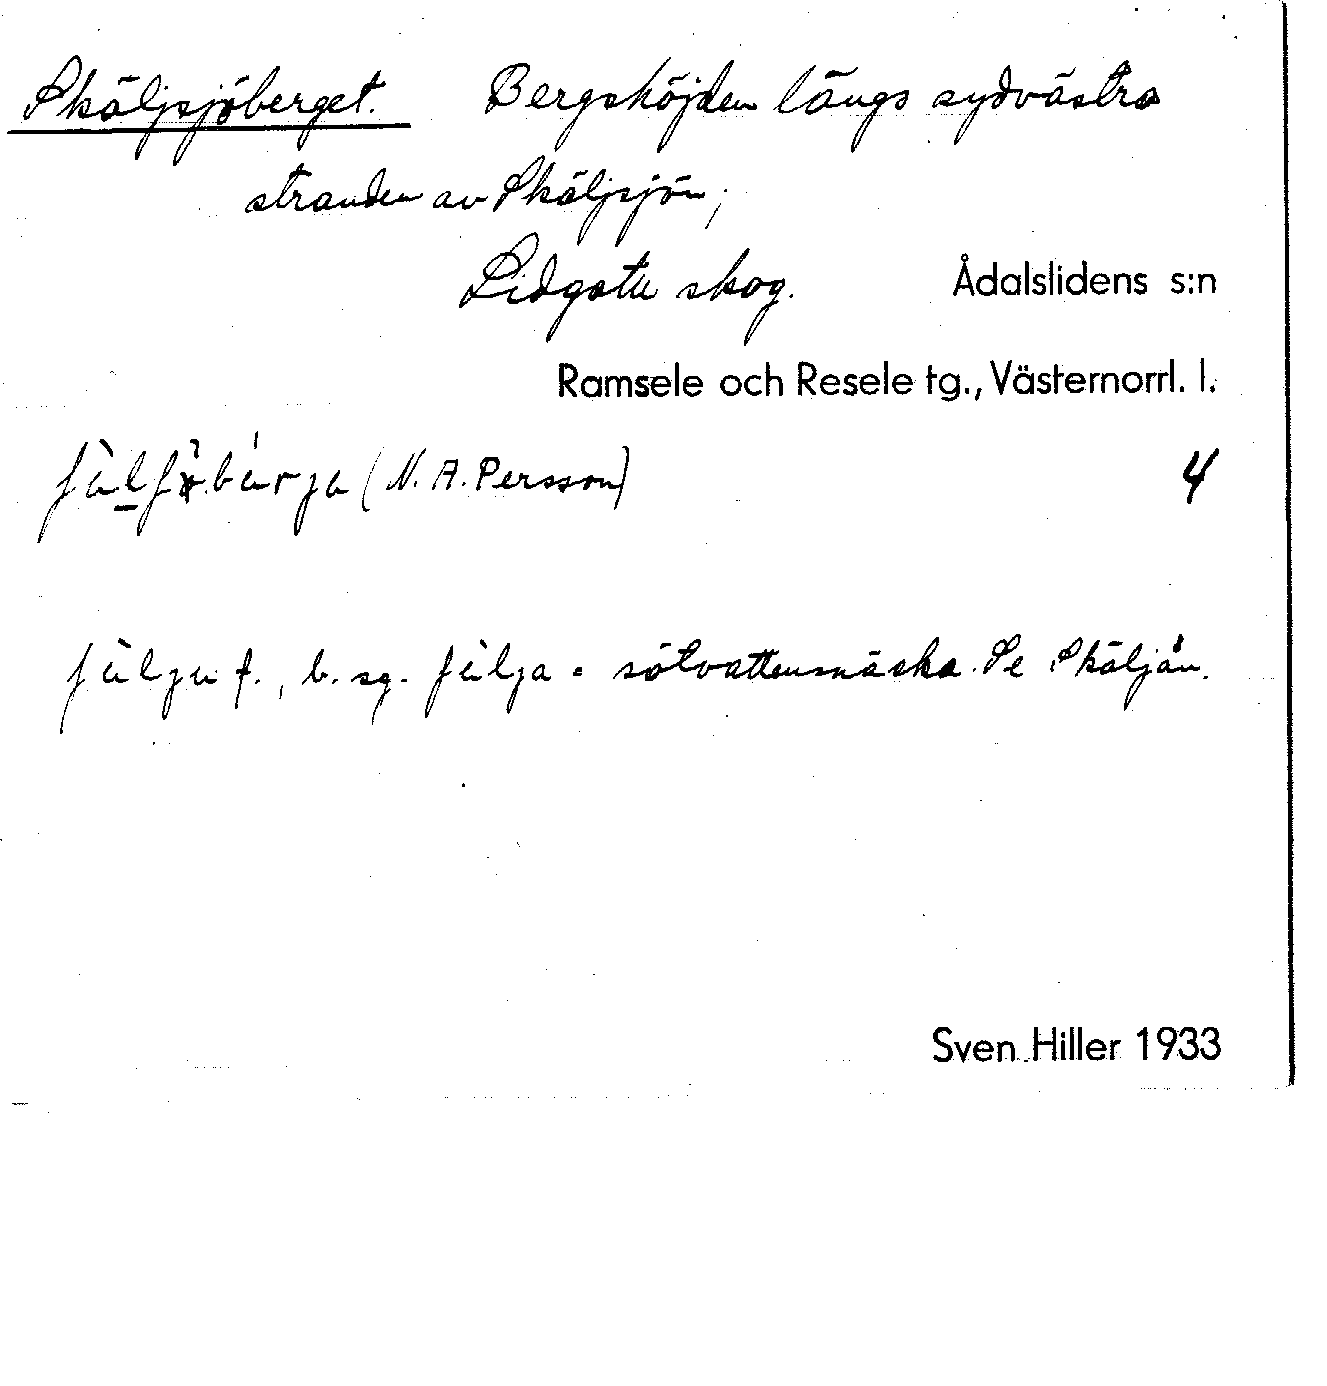 Skäljsjöberget. Bergshöjden längs sydvästra
stranden av Skäljsjön;
Lidgatu skog. Ådalslidens s:n
Ramsele och Resele tg., Västernorrl. l.
(N. A. Persson) 4
f., b. sg. = sötvattensnäcka. Se Skäljån.
Sven Hiller 1933